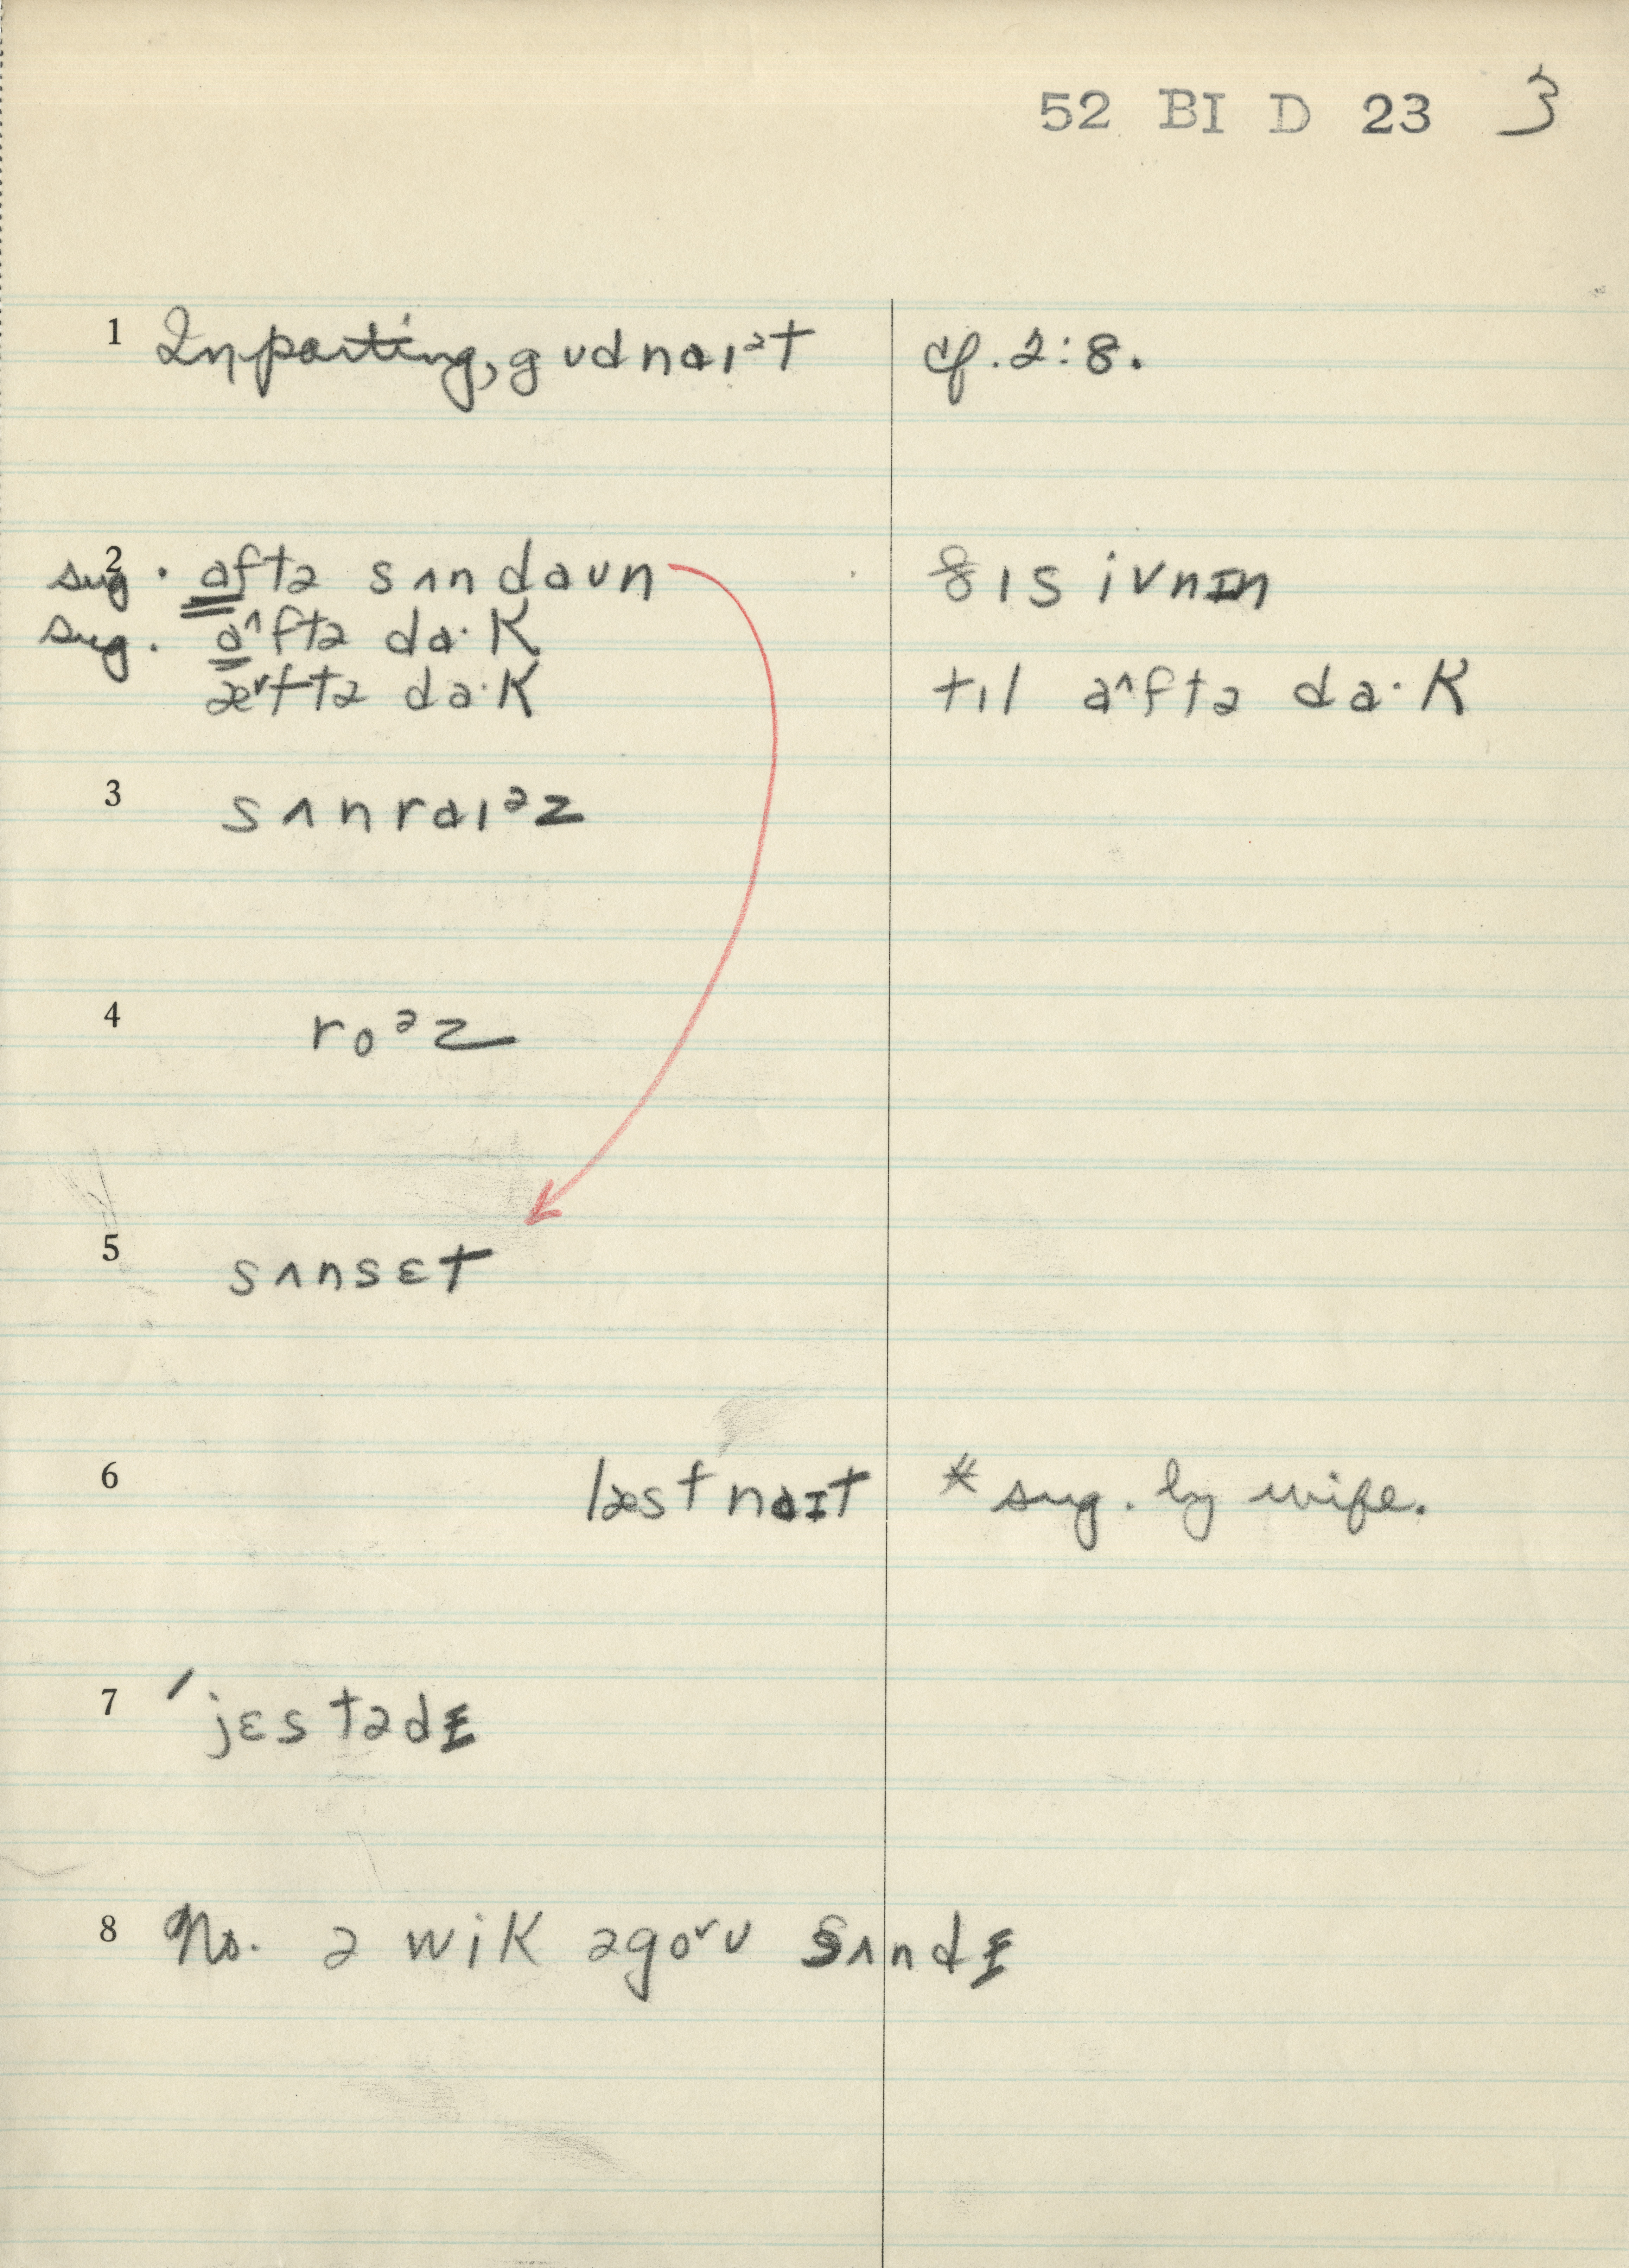 52 BI D 23 3
1 In parting, gʊdnaɪᵊt cf. 2:8.
2 sug. aftə sʌndaʊn ðɪs ivnɪn
sug. a^ftə da·k
æ˅ftə da·k tɪl a^ftə da·k
3 sʌnraɪᵊz
4 roᵊz
5 sʌnsɛt
6 læst naɪt * sug. by wife.
7 ˈjɛstədɪ
8 Ns. ə wik əgo˅ʊ sʌndɪ